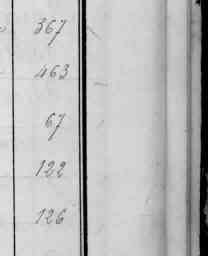 367
463
67
122
126